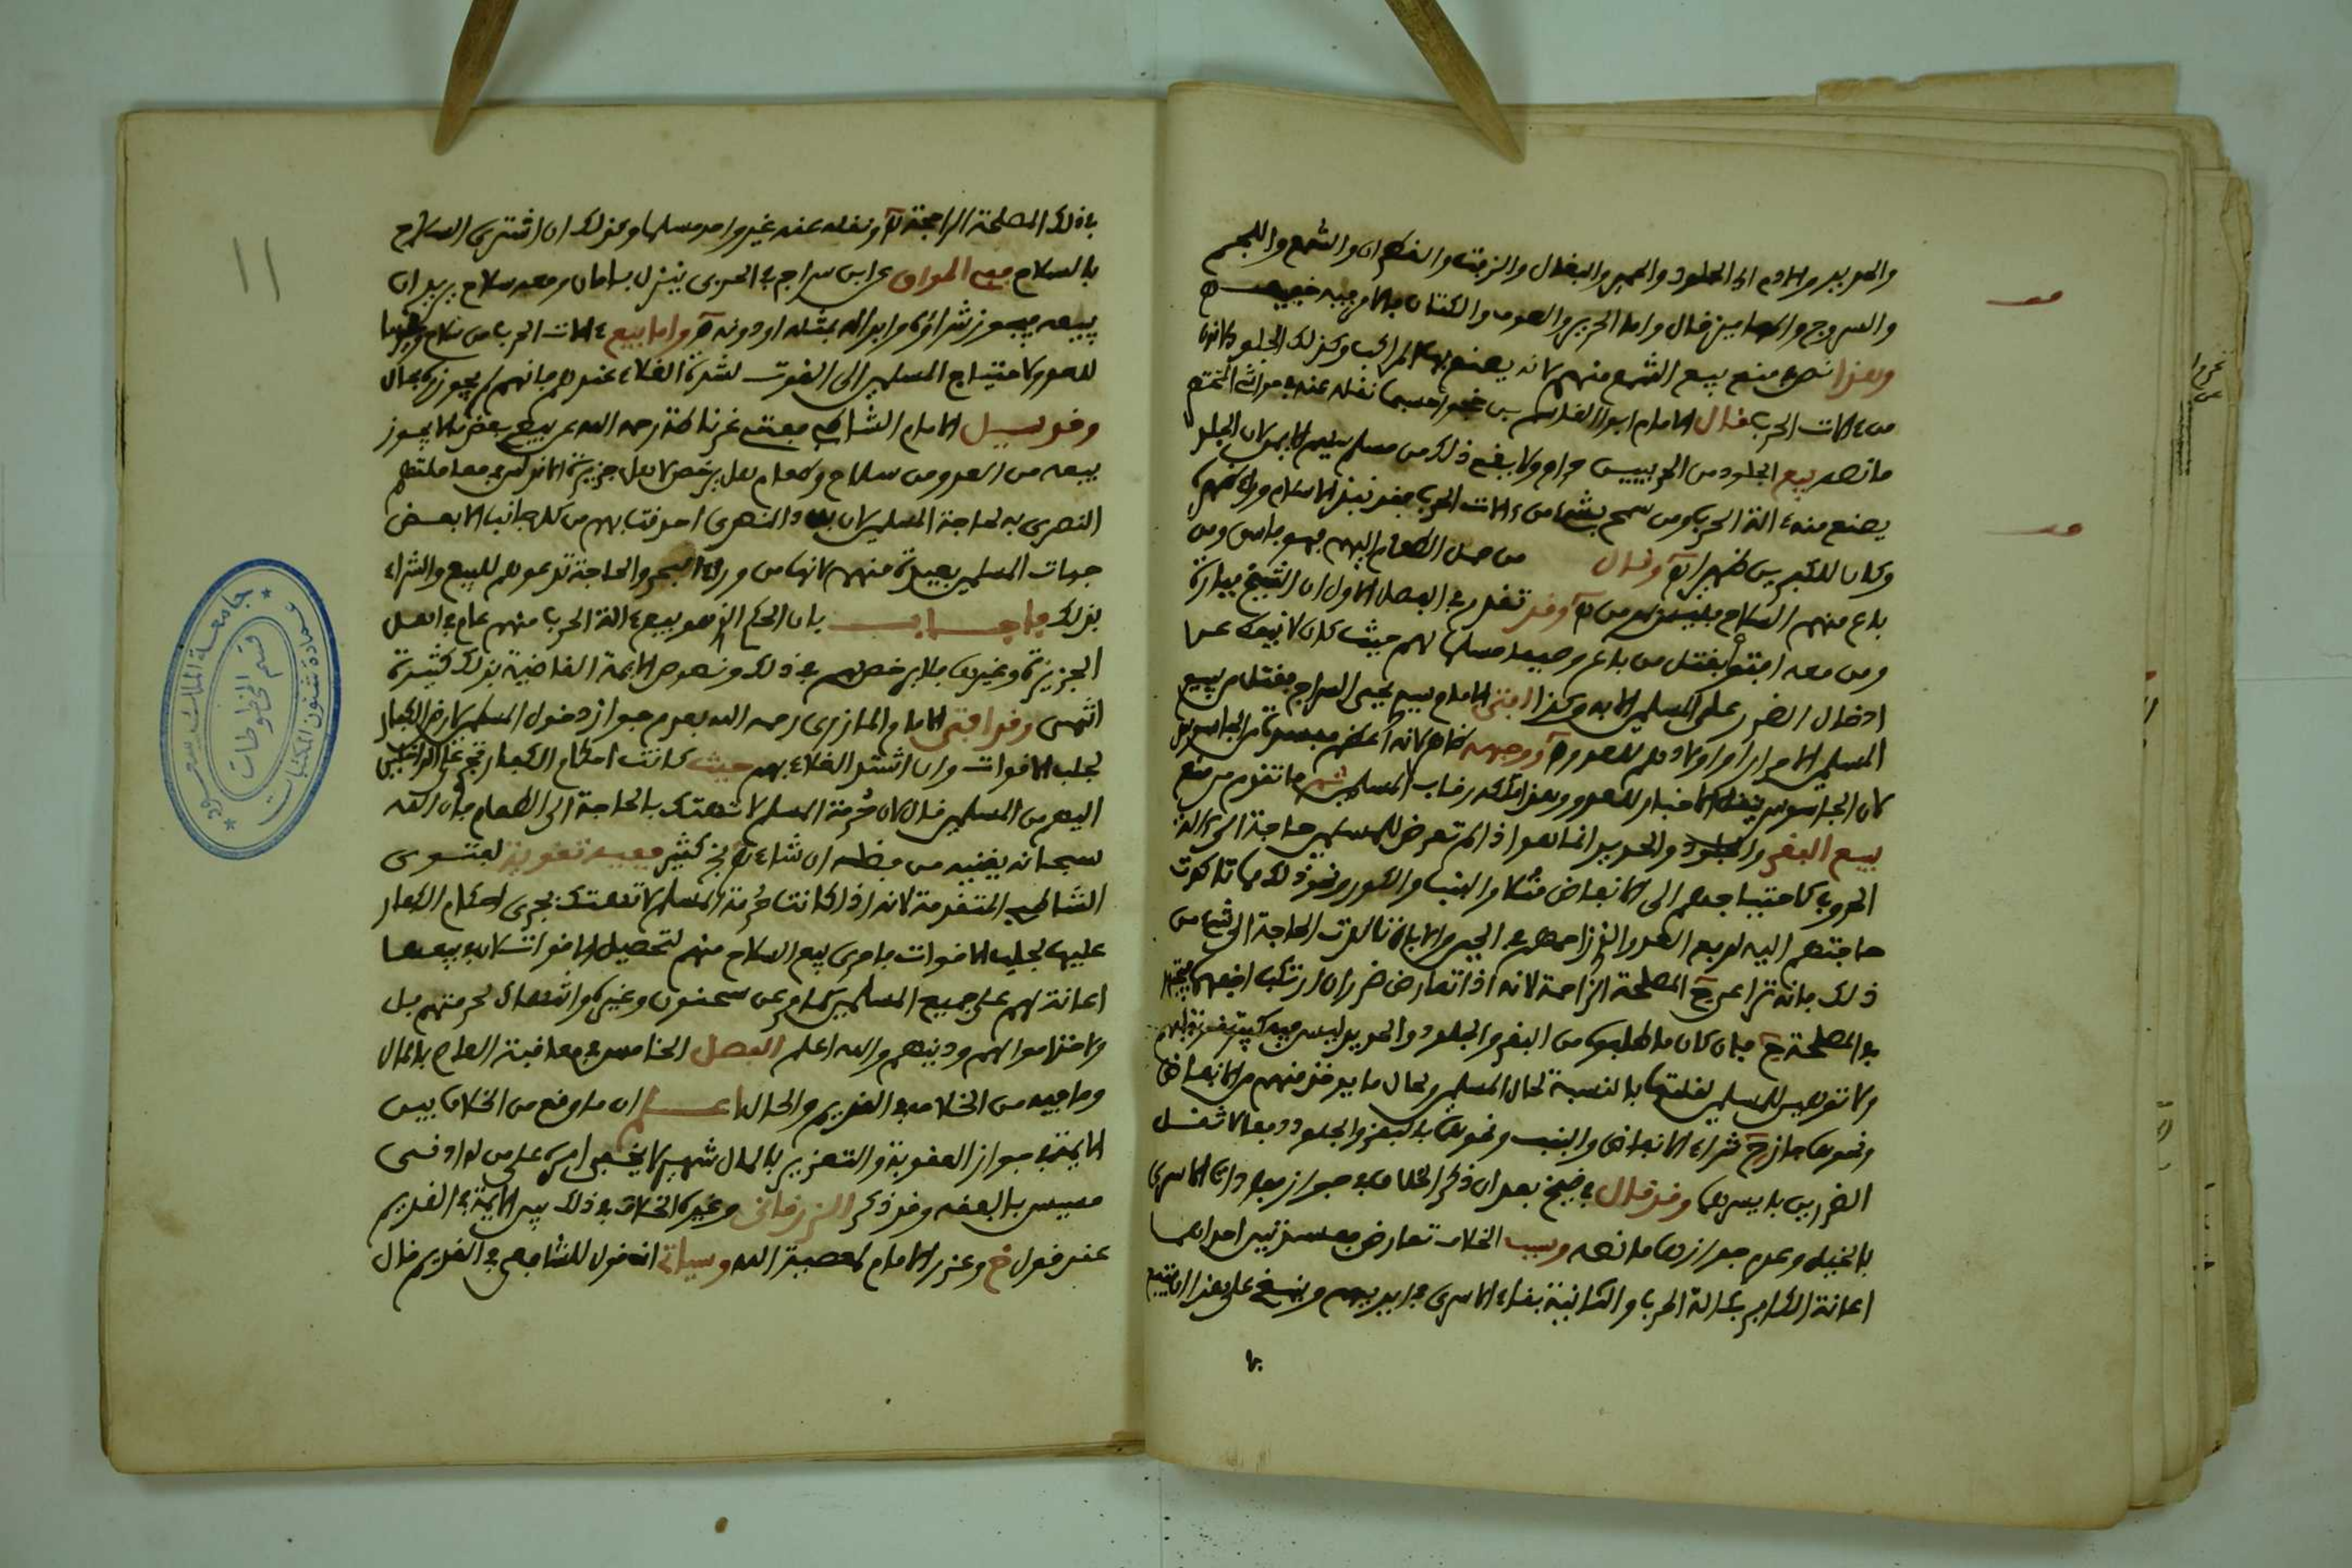 والحديد والادم اي الجلود والحمير والبغال والزيت والقطران والشمع واللجم
والسروج والمهاميز قال واما الحرير والصوف والكتان فالامر فيه خفيف
وهذا نص منع بيع الشمع منهم لانه يصنع به المراكب وكذلك الجلود لانها
من ءالات الحرب قال الامام ابو القاسم بن حسبما نقله عنه
ما نصه بيع الجلود من الحربيين حرام ولا يقع ذلك من مسلم سليم الايمان لان الجلد
يصنع منه ءالة الحرب ومن سمح بشيء من ءالات الحرب فقد نبذ الاسلام وراء ظهره
وكان للكفرين ظهيرا اه وقال من حمل الطعام اليهم فهو فاسق ومن
باع منهم السلاح فليس بمومن اه وقد تقدم في الفصل الاول ان الشيخ ميارة
ومن معه افتوا بقتل من باع وصيفا مسلما لهم حيث كان لا ينفك عن
ادخال الضرر على المسلمين الا به وكذا افتى الامام سيدي يحيى السراج بقتل من يبيع
المسلمين الاحرار او اولادهم للعدو اه ووجهه ظاهر لانه اعظم مفسدة من الجاسوس
لان الجاسوس ينقل الاخبار للعدو وهذا ملكه رقاب المسلمين ثم ما تقدم من منع
بيع البقر والجلود والحديد انما هو اذا لم تعرض للمسلمين حاجة الى ءالة
الحروب كاحتياجهم الى الانفاض مثلا والبنب والكور ونحو ذلك مما تاكدت
حاجتهم اليه لدفع العدو الذي زاحمهم في البحر والا بان تاكدت الحاجة الى شيء من
ذلك فانه تراعى ح المصلحة الراجحة لانه اذا تعارض ضرران ارتكب اخفهما
بالمصلحة ح فان كان ما طلبوه من البقر والجلود والحديد ليس فيه كبير تقوية لهم
ولا توهين للمسلمين لقلتها بالنسبة لحال المسلمين ولحال ما يوخذ منهم من الانفاض
ونحوها جاز ح شراء الانفاض والبنب ونحوها بالبقر والجلود دفعا لاثقل
الضررين بايسرهما وقد قال في ضيح بعد ان ذكر الخلاف في جواز مفادات الاسرى
بالخيل وعدم جوازها ما نصه وسبب الخلاف تعارض مفسدتين احداهما
اعانة الكافر بآلة الحرب والثانية بقاء الاسرى في ايديهم وينبغي على هذا ان يتبع
في
في ذلك المصلحة الراجحة اه ونقله عنه غير واحد مسلما وكذلك ان اشترى السلاح
بالسلاح ففي المواق عن ابن سراج في الحربي ينزل بامان ومعه سلاح يريد ان
يبيعه فيجوز شراؤه وابداله بمثله او دونه اه واما بيع ءالات الحرب من سلاح وغيرها
للعدو لاحتياج المسلمين الى القوت لشدة الغلاء عندهم فانهم لم يجوزوه بحال
وقد سيل الامام الشاطبي مفتي غرناطة رحمه الله عن بيع بعض ما لا يجوز
بيعه من العدو من سلاح وطعام هل يرخص لاهل جزيرة الاندلس في معاملتهم
النصرى به لحاجة المسلمين لان بلاد النصرى احدقت بهم من كل جانب الا بعض
جهات المسلمين بعيدة منهم لانها من وراء البحر والحاجة تدعوهم للبيع والشراء
بذلك فاجاب بان الحكم الذي هو بيع ءالة الحرب منهم عام في اهل
الجزيرة وغيرها فلا يرخص لهم في ذلك ونصوص الايمة القاضية بذلك كثيرة
انتهى وقد افتى الامام المازري رحمه الله بعدم جواز دخول المسلمين لارض الكفار
لجلب الاقوات وان اشتد الغلاء بهم حيث كانت احكام الكفار تجري على الداخلين
اليهم من المسلمين قال لان حرمة المسلم لا تهتك بالحاجة الى الطعام فان الله
سبحانه يغنيه من فضله ان شاء اه كثير ففيه تقوية لفتوى
الشاطبي المتقدمة لانه اذا كانت حرمة المسلم لا تهتك بجري احكام الكفار
عليها لجلب الاقوات فاحرى بيع السلاح منهم لتحصيل الاقوات لان في بيعها
اعانة لهم على جميع المسلمين كما مر عن سحنون وغيره وانتهاك لحرمتهم بل
ولاخذ اموالهم ودينهم والله اعلم الفصل الخامس في معاقبة العام بالمال
وما فيه من الخلاف في القديم والحال اعلم ان ما وقع من الخلاف بين
الايمة في جواز العقوبة والتعزير بالمال شهير لا يخفى امره على من له ادنى
مسيس بالفقه وقد ذكر الزرقاني وغيره الخلاف في ذلك بين الايمة في القديم
عند قول خ وعزر الامام لمعصية الله وسياتي انه قول للشافعي في القديم قال
١١
جامعة الملك سعود
عمادة شئون المكتبات
قسم المخطوطات